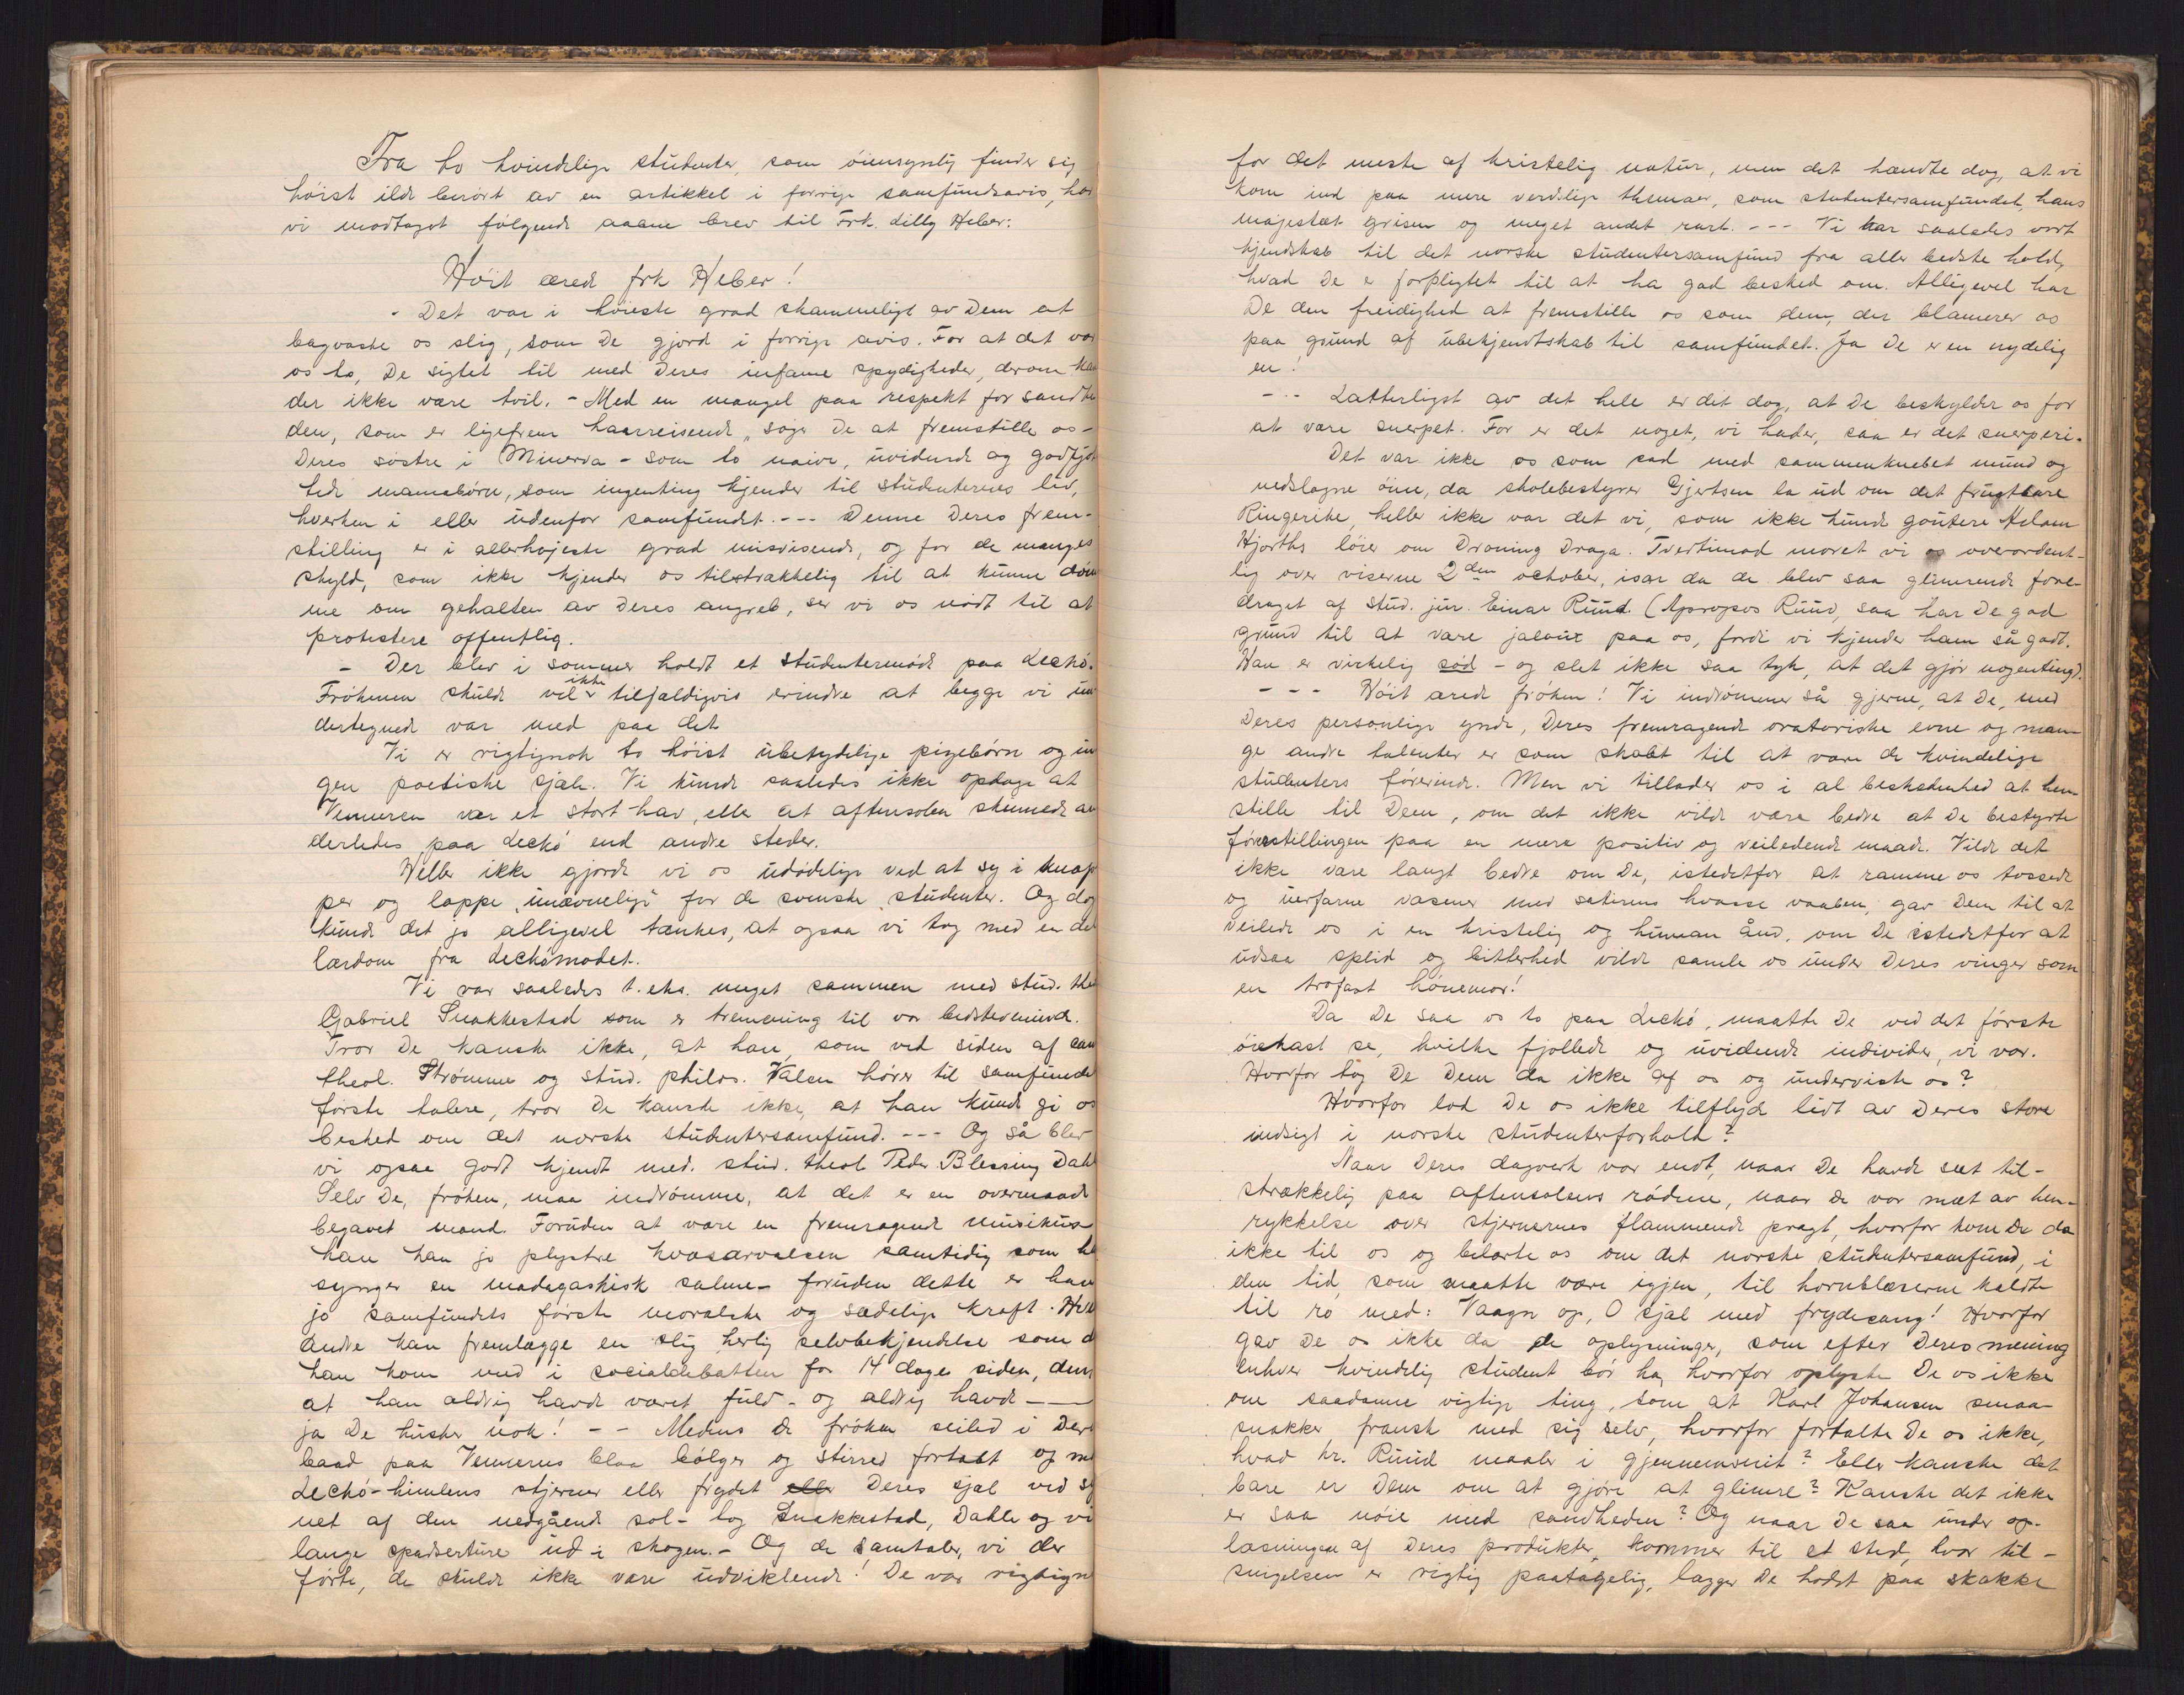 Fra to kvindelige studenter, som öiensynlig finder sig
höist ilde berört av en artikkel i forrige samfundsavis, har
vi modtaget följende aabne brev til Frk. Lilly Heber:
Höit ærede frk Heber!
- Det var i höieste grad skammeligt av Dem at
bagvaske os slig, som De gjord i forrige avis. For at det var
os to, De sigtet til med Deres infame spydigheder, derom kan
der ikke være tvil. - Med en mangel paa respekt for sandhe
den, som er ligefrem haarreisende, söger De at fremstille os -
Deres söstre i Minerva - som to naive, uvidende og godtgjö
tede mamabörn, som ingenting kjender til studenternes liv,
hverken i eller udenfor samfundet. --- Denne Deres frem-
stilling er i allerhöjeste grad misvisende, og for de manges
skyld, som ikke kjender os tilstrækkelig til at kunne döm
me om gehalten av Deres angreb, ser vi os nödt til at
protestere offentlig.
- Der blev i sommer holdt et studentermöde paa Leckö.
Frökenen skulde vel ikke tilfældigvis erindre at begge vi un
dertegnede var med paa det
Vi er rigtignok to höist ubetydelige pigebörn og in
gen poetiske sjæle. Vi kunde saaledes ikke opdage at
Venneren var et stort hav, eller at aftensolen skinnede an
derledes paa Leckö end andre steder.
Heller ikke gjorde vi os udödelige ved at sy i knap
per og lappe "unævnelige" for de svenske studenter. Og dog
kunde det jo alligevel tænkes, at ogsaa vi tog med en del
lærdom fra Leckömödet.
Vi var saaledes t.eks. meget sammen med stud. theol
Gabriel Snakkestad som er tremening til vor bedsteveninde.
Tror De kanske ikke, at han, som ved siden af can
theol. Strömme og stud. philos. Valen hörer til samfundet
förste talere, tror De kanske ikke, at han kunde gi os
besked om det norske studentersamfund. --- Og så blev
vi ogsaa godt kjendt med. stud. theol Peder Blessing Dahl
Selv De, fröken, maa indrömme, at det er en overmaade
begavet mand. Foruden at være en fremragende musikus
kan han jo plystre kvæsarvalsen samtidig som h
synger en madagaskisk salme - foruden dette er han
jo samfundets förste moralske og sædelige kraft. Hvem
andre kan fremlægge en slig herlig selvbekjendelse som d
han kom med i socialdebatten for 14 dager siden, den
at han aldrig havde været fuld - og aldrig havde ---
ja De husker nok! -- Medens De fröken seiled i Der
baad paa Vennerns blaa bölger og stirred fortabt og m
Leckö-himlens stjerner eller frydet Deres sjæl ved sy
net af den nedgående sol - tog Snakkestad, Dahle og vi
lange spadserture ud i skogen. - Og de samtaler, vi der
förte, de skulde ikke være udviklende! De var rigtign
for det meste af kristelig natur, men det hændte dog, at vi
kom ind paa mere verdslige themaer, som studentersamfundet, hans
majestæt grisen og meget andet rart. --- Vi har saaledes vort
kjendskab til det norske studentersamfund fra aller bedste hold,
hvad De er forpligtet til at ha god besked om. Alligevel har
De den freidighed at fremstille os som dem, der blamerer os
paa grund af ubekjendtskab til samfundet. Ja De er en nydelig
en!
--- Latterligst av det hele er det dog, at De beskylder os for
at være snerpet. For er det noget, vi hader, saa er det snerperi.
Det var ikke os som sad med sammenknebet mund og
nedslagne öine, da skolebestyrer Gjertsen la ud om det frugtbare
Ringerike, heller ikke var det vi, som ikke kunde goutere Adam
Hjorths löier om Droning Draga. Tvertimod moret vi os overordent-
lig over viserne 2den october, især da de blev saa glimrende fore-
draget af stud. jur. Einar Ruud. (Apropos Ruud, saa har De god
grund til at være jaloux paa os, fordi vi kjender ham så godt.
Han er virkelig söd - og slet ikke saa tyk, at det gjör nogenting).
--- Höit ærede fröken! Vi indrömmer så gjerne, at De, med
Deres personlige ynde, Deres fremragende oratoriske evne og man-
ge andre talenter er som skabt til at være de kvindelige
studenters förerinde. Men vi tillader os i al beskedenhed at hen
stille til Dem, om det ikke vilde være bedre at De bestyrte
förerstillingen paa en mere positiv og veiledende maade. Vilde det
ikke være langt bedre om De, istedetfor at ramme os tossede
og uerfarne væsener med satirens hvasse vaaben, gav Dem til at
veilede os i en kristelig og human ånd, om De istedetfor at
udsaa splid og bitterhed vilde samle os under Deres vinger som
en trofast hönemor!
Da De saa os to paa Leckö, maatte De ved det förste
öiekast se, hvilke fjollede og uvidende individer, vi var.
Hvorfor tog De Dem da ikke af os og underviste os?
Hvorfor lod De os ikke tilflyde lidt av Deres store
indsigt i norske studenterforhold?
Naar Deres dagverk var endt, naar De havde set til-
strækkelig paa aftensolens rödme, naar De var mæt av hen-
rykkelse over stjernernes flammende pragt, hvorfor kom De da
ikke til os og belærte os om det norske studentersamfund, i
den tid, som maatte være igjen, til hornblæserne kaldte
til ro med: Vaagn op, O sjæl med frydesang! Hvorfor
gav De os ikke da de oplysninger, som efter Deres mening
enhver kvindelig student bör ha, hvorfor oplyste De os ikke
om saadanne vigtige ting, som at Karl Johansen smaa-
snakker fransk med sig selv, hvorfor fortalte De os ikke,
hvad hr. Ruud maaler i gjennemsnit? Eller kanske det
bare er Dem om at gjöre at glimre? Kanske det ikke
er saa nöie med sandheden? Og naar De saa under op-
læsningen af Deres produkter, kommer til et sted, hvor til-
snigelsen er rigtig paatagelig, lægger De hodet paa skakke